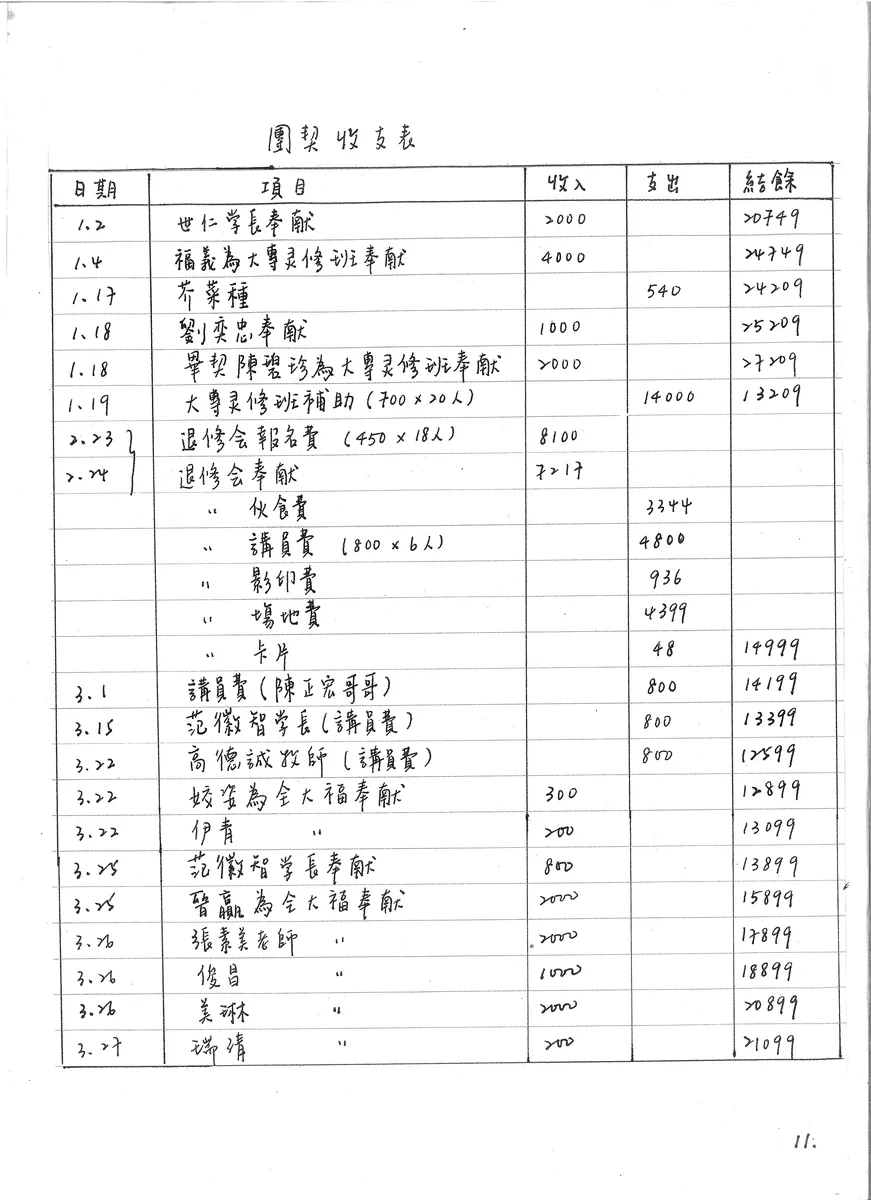 團契收支表
日期 項目 收入 支出 結餘
1.2 世仁学長奉献 2000 20749
1.4 福義為大專灵修班奉献 4000 24749
1.17 芥菜種 540 24209
1.18 劉奕忠奉献 1000 25209
1.18 畢契陳碧珍為大專灵修班奉献 2000 27209
1.19 大專灵修班補助(700×20人) 14000 13209
2.23 退修会報名費 (450×18人) 8100
2.24 退修会奉献 7217
〃 伙食費 3344
〃 講員費 (800×6人) 4800
〃 影印費 936
〃 場地費 4399
〃 卡片 48 14999
3.1 講員費(陳正宏哥哥) 800 14199
3.15 范徽智学長(講員費) 800 13399
3.22 高德誠牧師(講員費) 800 12599
3.22 姣姿為全大福奉献 300 12899
3.22 伊青 〃 200 13099
3.25 范徽智学長奉献 800 13899
3.25 晉贏為全大福奉献 2000 15899
3.26 張素美老師 〃 2000 17899
3.26 俊昌 〃 1000 18899
3.26 美琳 〃 2000 20899
3.27 瑞清 〃 200 21099
11.